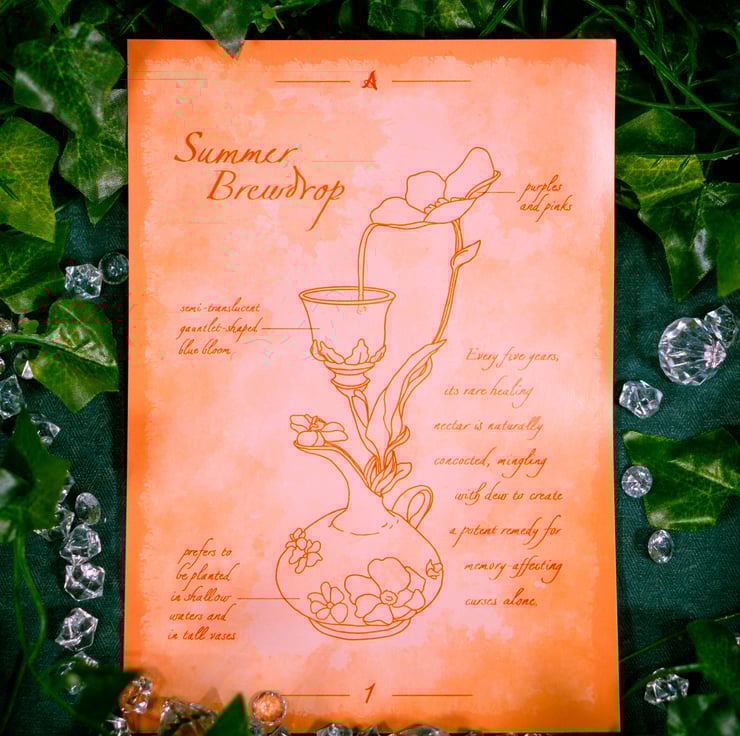 A
Summer
Brewdrop
purples
and pinks
semi-translucent
gauntlet-shaped
blue bloom
Every five years,
its rare healing
nectar is naturally
concocted, mingling
with dew to create
a potent remedy for
memory-affecting
curses alone.
prefers to
be planted
in shallow
waters and
in tall vases
1